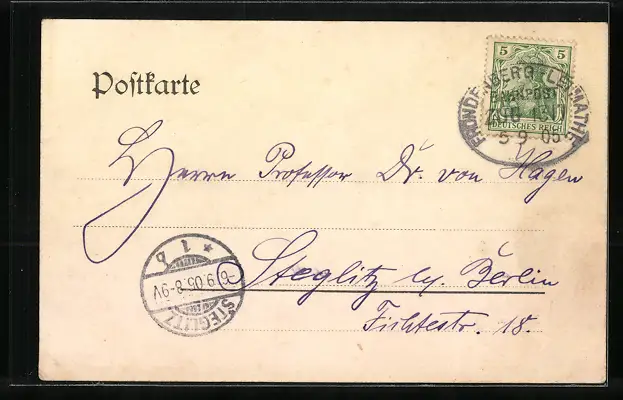 Postkarte
5 5
DEUTSCHES REICH
FRÖNDENBERG-LETMATHE
BAHNPOST
ZUG
5 9 05
Herrn Professor Dr. von Hagen
Steglitz b/ Berlin
Fichtestr. 18.
STEGLITZ
6.9.05.8-9V
* 1 b